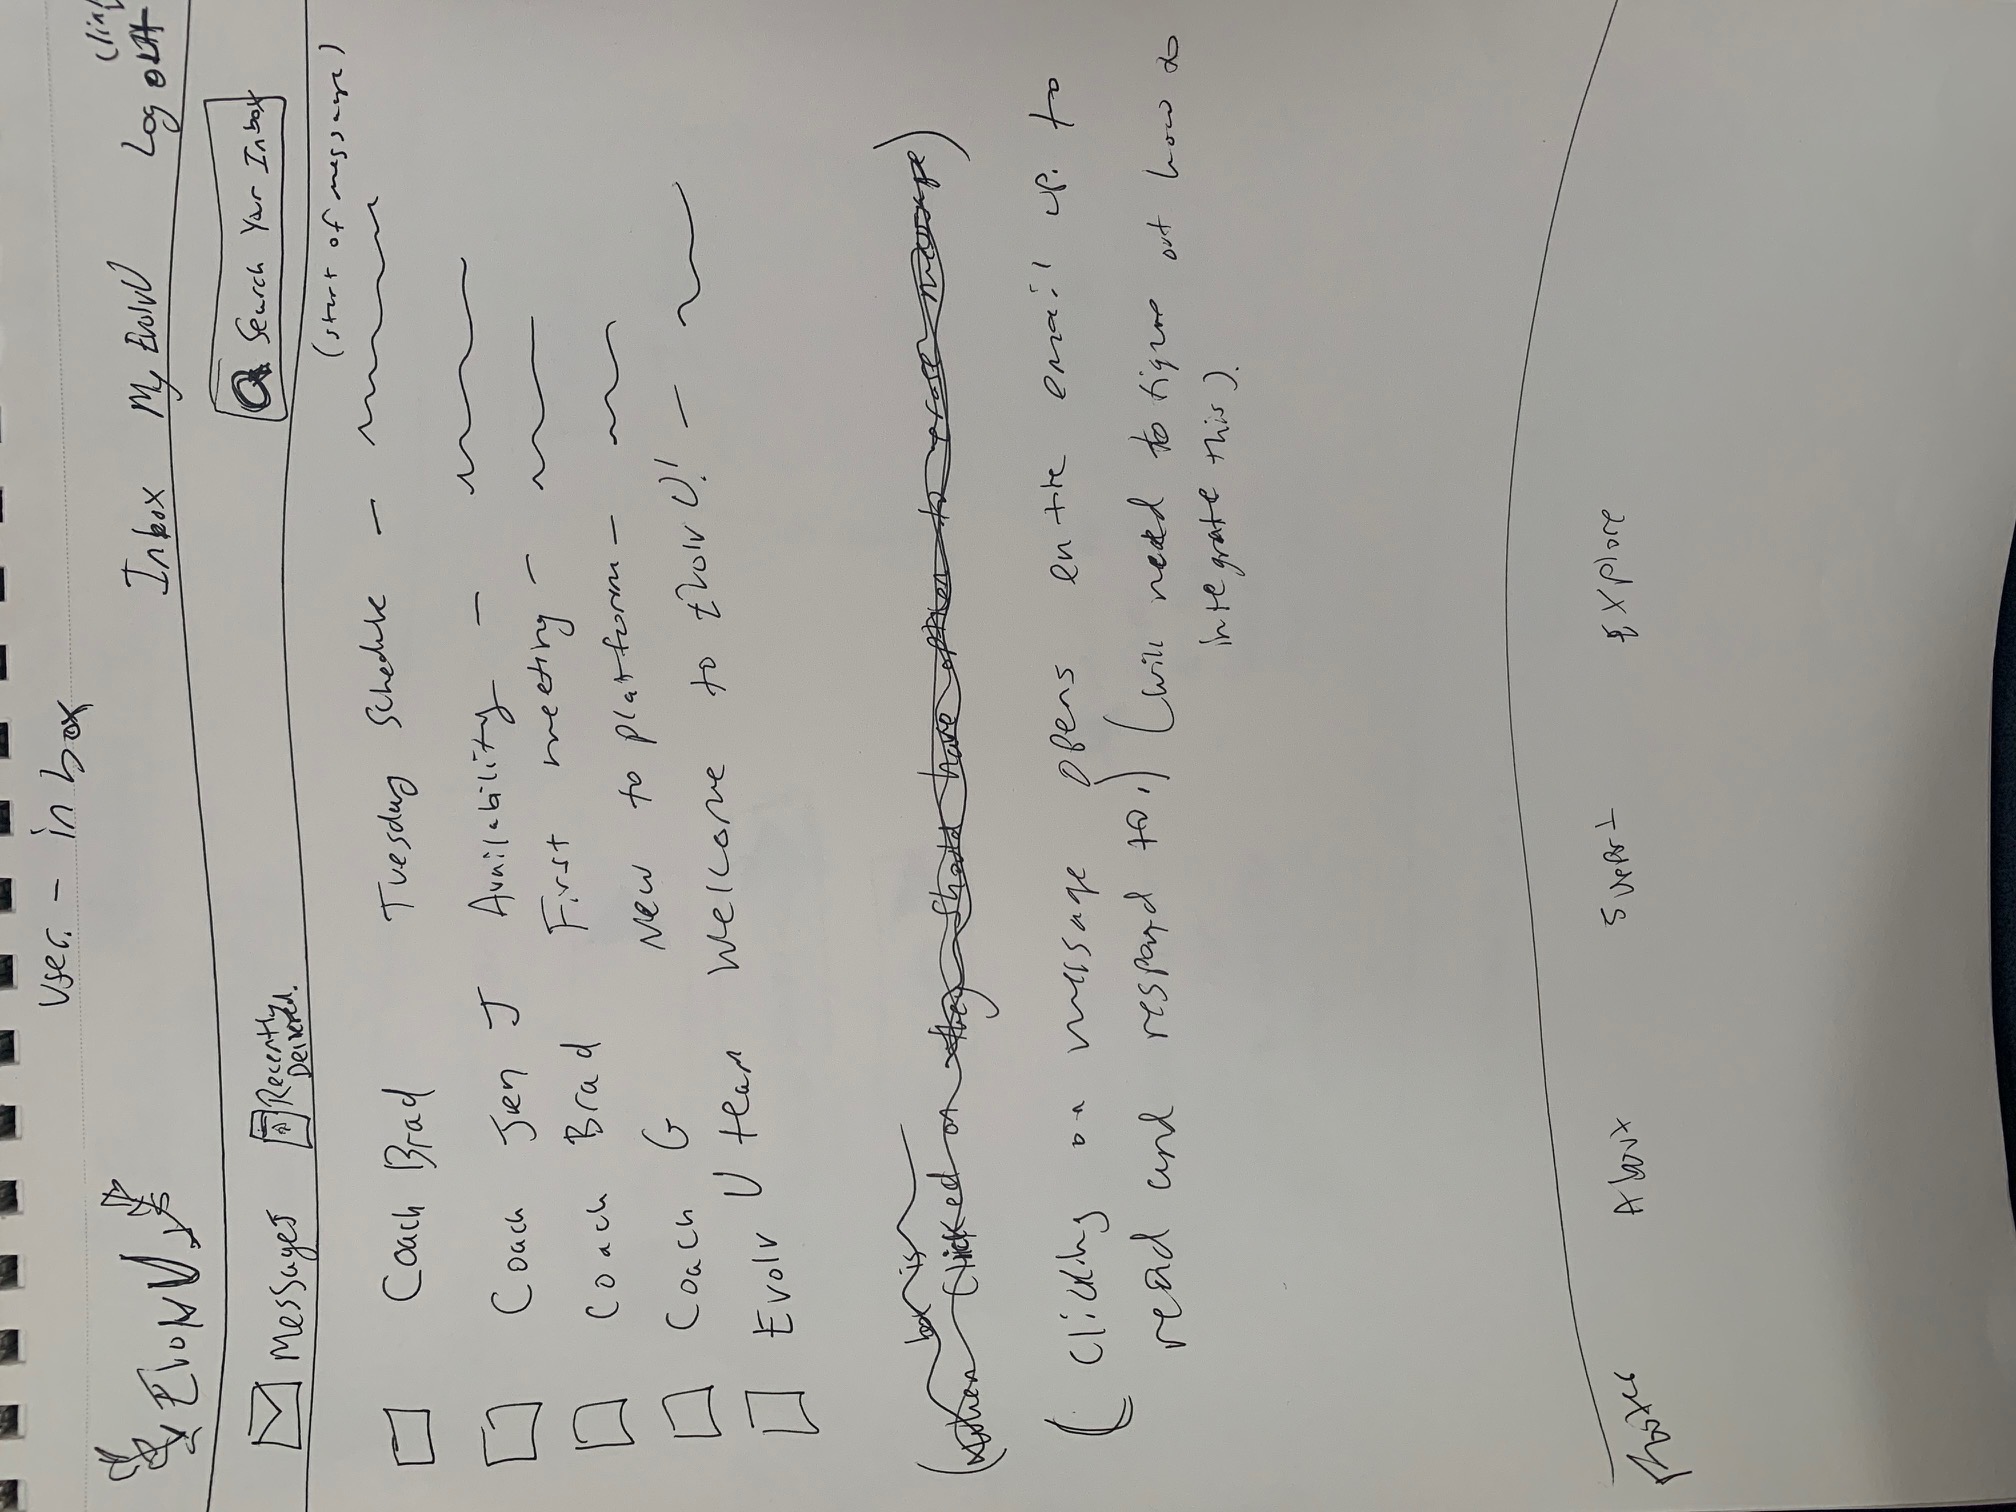 User - inbox
EvolvU Inbox My EvolvU Log out
Messages Recently
Deleted.
Search Your Inbox
(start of message)
Coach Brad Tuesday Schedule -
Coach Jen J Availability -
Coach Brad First meeting -
Coach G New to platform -
Evolv U team Welcome to EvolvU! -
box is
(when clicked on they should have option to erase message)
(Clicking on message opens entire email up to
read and respond to.) (will need to figure out how to
integrate this).
About Support Explore